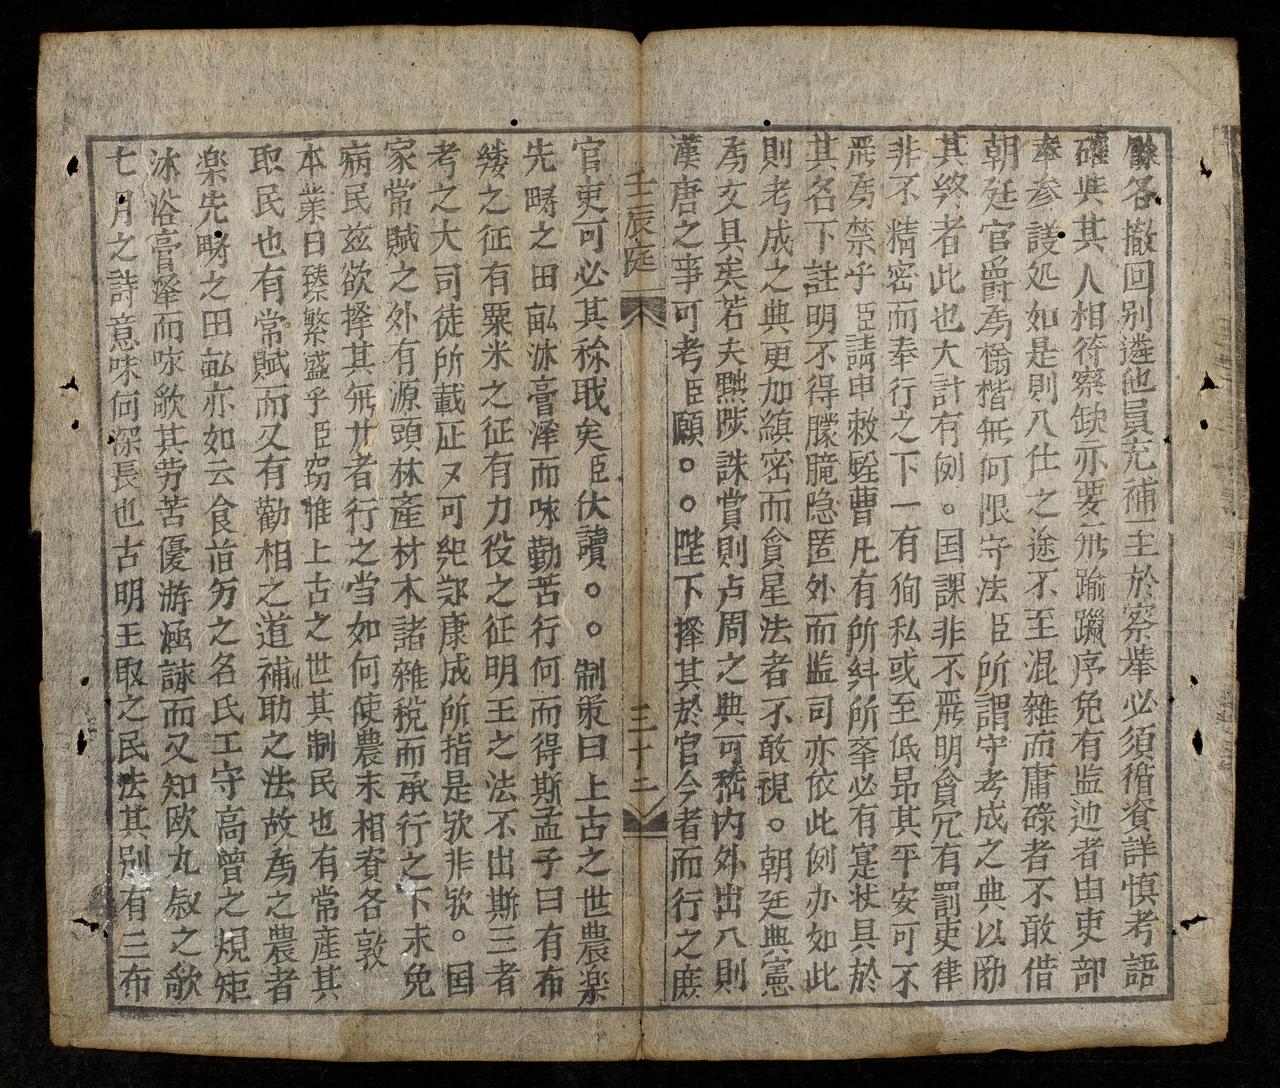 各撤回别遴他員充補至於察舉必須循資詳慎考語
確與其人相符察缺亦要無踰躐序免有监廵者由吏部
奉参議処如是則入仕之途不至混雜而庸碌者不敢借
朝廷官爵為榻楷無何限守法臣所謂守考成之典以勵
其終者此也大計有例。国課非不嚴明貪冗有罰吏律
非不精密而奉行之下一有狥私或至低昂其平安可不
嚴為禁乎臣請申敕銓曹凡有所糾所舉必有寔状具於
其各下註明不得朦朧隐匿外而监司亦依此例办如此
則考成之典更加縝密而貪墨法者不敢視。朝廷典憲
為文具矣若夫黜陟誅賞則卢周之典可稽内外出入則
漢唐之事可考臣願。。陛下擇其於官今者而行之庶
壬辰庭
三十二
官吏可必其稱職矣臣伏讀。。制策曰上古之世農楽
先疇之田畝沐膏泽而咏勤苦行何而得斯孟子曰有布
縷之征有粟米之征有力役之征明王之法不出斯三者
考之大司徒所載征又可興郊康成所指是欤非欤。国
家常賦之外有源頭林産材木諸雜税而承行之下未免
病民兹欲擇其無弊者行之当如何使農末相資各敦
本業日臻繁盛乎臣窃惟上古之世其制民也有常産其
取民也有常賦而又有勸相之道補助之法故為之農者
楽先畴之田畝亦如云食旧穷之名氏工守高曾之規矩
沐浴膏澤而咏歌其劳苦優游涵詠而又知欧九叔之歌
七月之詩意味何深長也古明王取之民法其别有三布